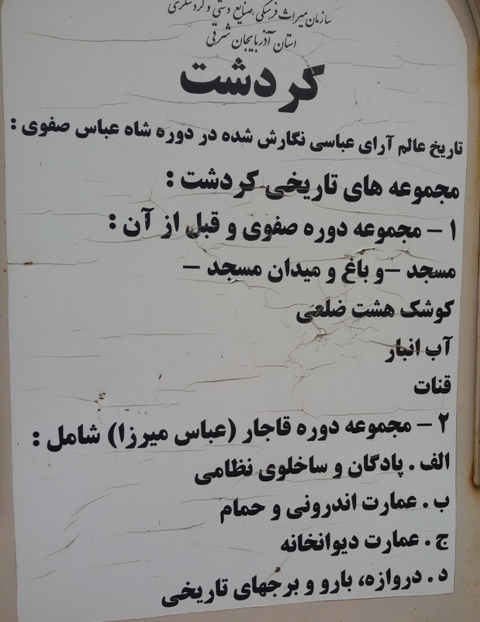 سازمان میراث فرهنگی، صنایع دستی و گردشگری
استان آذربایجان شرقی
کردشت
تاریخ عالم آرای عباسی نگارش شده در دوره شاه عباس صفوی :
مجموعه های تاریخی کردشت :
۱ – مجموعه دوره صفوی و قبل از آن :
مسجد –و باغ و میدان مسجد –
کوشک هشت ضلعی
آب انبار
قنات
۲ – مجموعه دوره قاجار (عباس میرزا) شامل :
الف . پادگان و ساخلوی نظامی
ب . عمارت اندرونی و حمام
ج . عمارت دیوانخانه
د . دروازه، بارو و برجهای تاریخی